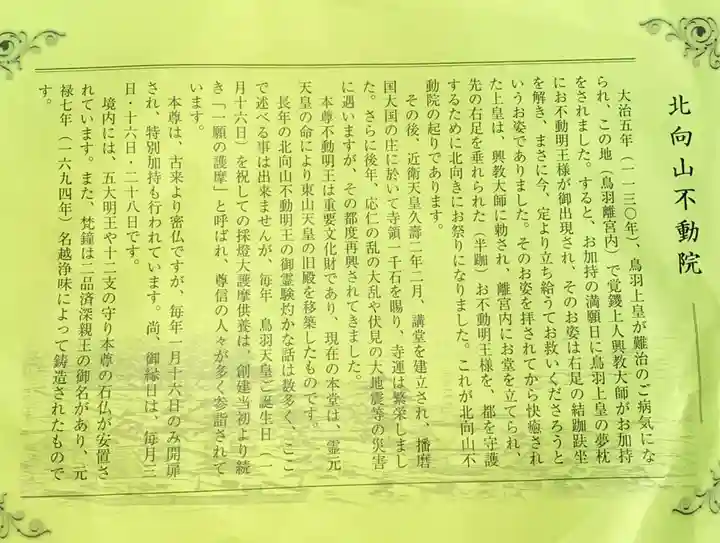 北向山不動院
大治五年(一一三〇年)、鳥羽上皇が難治のご病気にな
られ、この地(鳥羽離宮内)で覚鑁上人興教大師がお加持
をされました。すると、お加持の満願日に鳥羽上皇の夢枕
にお不動明王様が御出現され、そのお姿は右足の結跏趺坐
を解き、まさに今、定より立ち給うてお救いくださろうと
いうお姿でありました。そのお姿を拝されてから快癒され
た上皇は、興教大師に勅され、離宮内にお堂を立てられ、
先の右足を垂れられた(半跏)お不動明王様を、都を守護
するために北向きにお祭りになりました。これが北向山不
動院の起りであります。
その後、近衛天皇久壽二年二月、講堂を建立され、播磨
国大国の庄に於いて寺領一千石を賜り、寺運は繁栄しまし
た。さらに後年、応仁の乱の大乱や伏見の大地震等の災害
に遇いますが、その都度再興されてきました。
本尊不動明王は重要文化財であり、現在の本堂は、霊元
天皇の命により東山天皇の旧殿を移築したものです。
長年の北向山不動明王の御霊験灼かな話は数多く、ここ
で述べる事は出来ませんが、毎年 鳥羽天皇ご誕生日(一
月十六日)を祝しての採燈大護摩供養は、創建当初より続
き「一願の護摩」と呼ばれ、尊信の人々が多く参詣されて
います。
本尊は、古来より密仏ですが、毎年一月十六日のみ開扉
され、特別加持も行われています。尚、御縁日は、毎月三
日・十六日・二十八日です。
境内には、五大明王や十二支の守り本尊の石仏が安置さ
れています。また、梵鐘は二品済深親王の御名があり、元
禄七年(一六九四年)名越浄味によって鋳造されたもので
す。